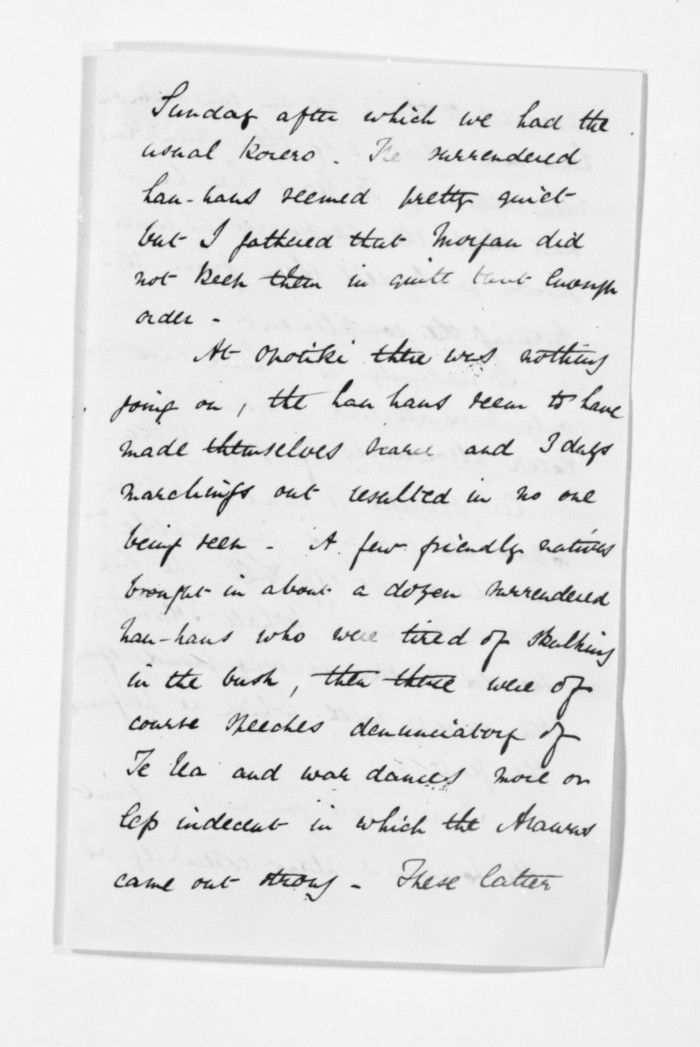 Sunday after which we had the
usual korero - The surrendered
hau-haus seemed pretty quiet
but I gathered that Morgan did
not keep them in quite taut enough
order -
At Opotiki there was nothing
going on, the hau haus seem to have
made themselves scarce and 3 days
marchings out resulted in no one
being seen - A few friendly natives
brought in about a dozen surrendered
hau-haus who were tired of skulking
in the bush, then there were of
course speeches denunciatory of
Te Ua and war dances more or
less indecent in which the Arawas
came out strong - These latter